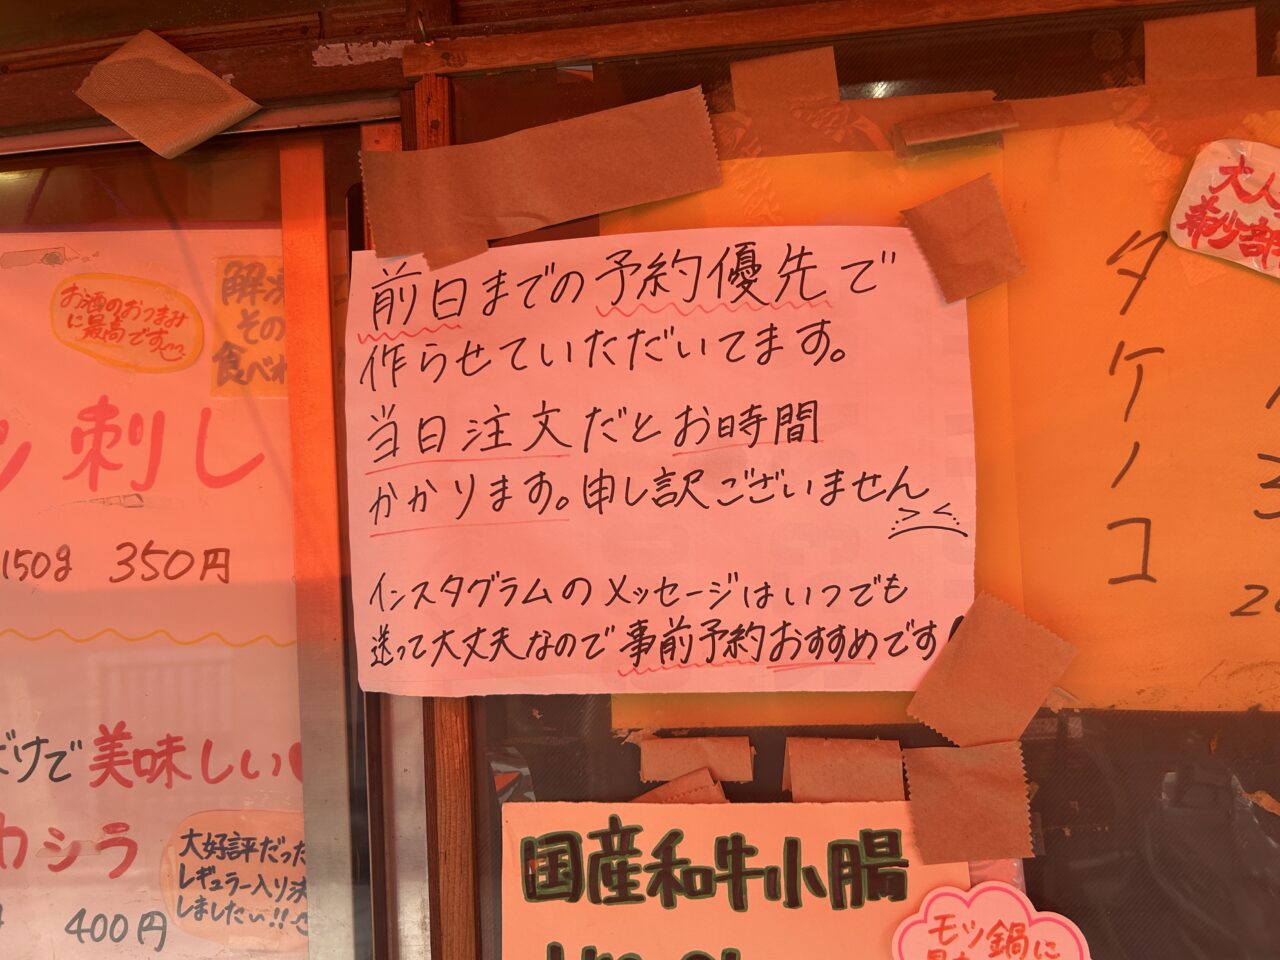 前日までの予約優先で
作らせていただいてます。
当日注文だとお時間
かかります。申し訳ございません
><
インスタグラムのメッセージはいつでも
送って大丈夫なので事前予約おすすめです
お酒のおつまみ
に最高です
その
食べ
刺し
150g 350円
だけで美味しい
カシラ
大好評だった
レギュラー入り決
しましたい!!
400円
タケノコ
大人
希少部
国産和牛小腸
モツ鍋に